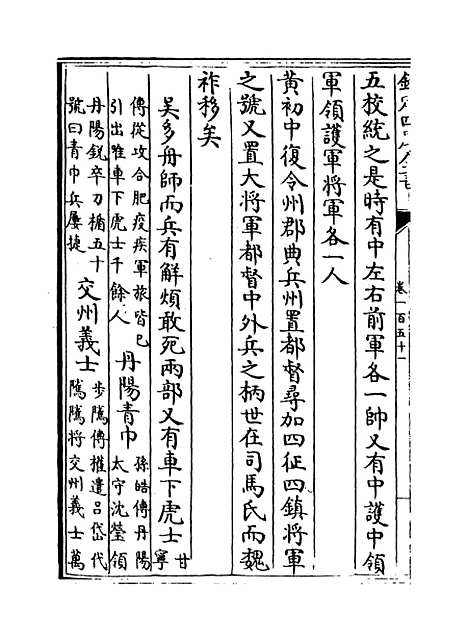 欽定四庫全書
卷一百五十一
五校統之是時有中左右前軍各一帥又有中護中領
軍領護軍將軍各一人
黃初中復令州郡典兵州置都督尋加四征四鎮將軍
之號又置大將軍都督中外兵之柄世在司馬氏而魏
祚移矣
吳多舟師而兵有解煩敢死兩部又有車下虎士甘寧
傳從攻合肥疫疾軍旅皆已
引出唯車下虎士千餘人
丹陽青巾
孫皓傳丹陽
太守沈瑩領
丹陽銳卒刀楯五十
號曰青巾兵屢捷
交州義士
步騭傳權遣呂岱代
騭騭將交州義士萬